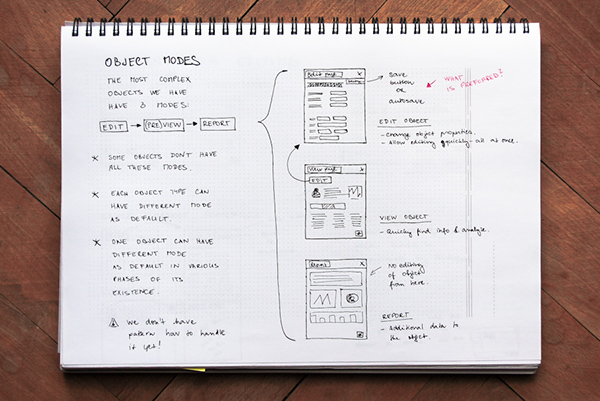 OBJECT MODES
THE MOST COMPLEX
OBJECTS WE HAVE
HAVE 3 MODES:
EDIT → (PRE)VIEW → REPORT
* SOME OBJECTS DON'T HAVE
ALL THESE MODES.
* EACH OBJECT TYPE CAN
HAVE DIFFERENT MODE
AS DEFAULT.
* ONE OBJECT CAN HAVE
DIFFERENT MODE
AS DEFAULT IN VARIOUS
PHASES OF ITS
EXISTENCE.
We don't have
pattern how to handle
it yet!
Edit Page X
SAVE
button
or
autosave
WHAT
IS PREFERRED?
EDIT OBJECT
- Change object properties.
- Allow editing quickly all at once.
View Page X
EDIT
VIEW OBJECT
- Quickly find info & analyze.
Report X
No editing
of object
from here.
REPORT
- additional data to
the object.